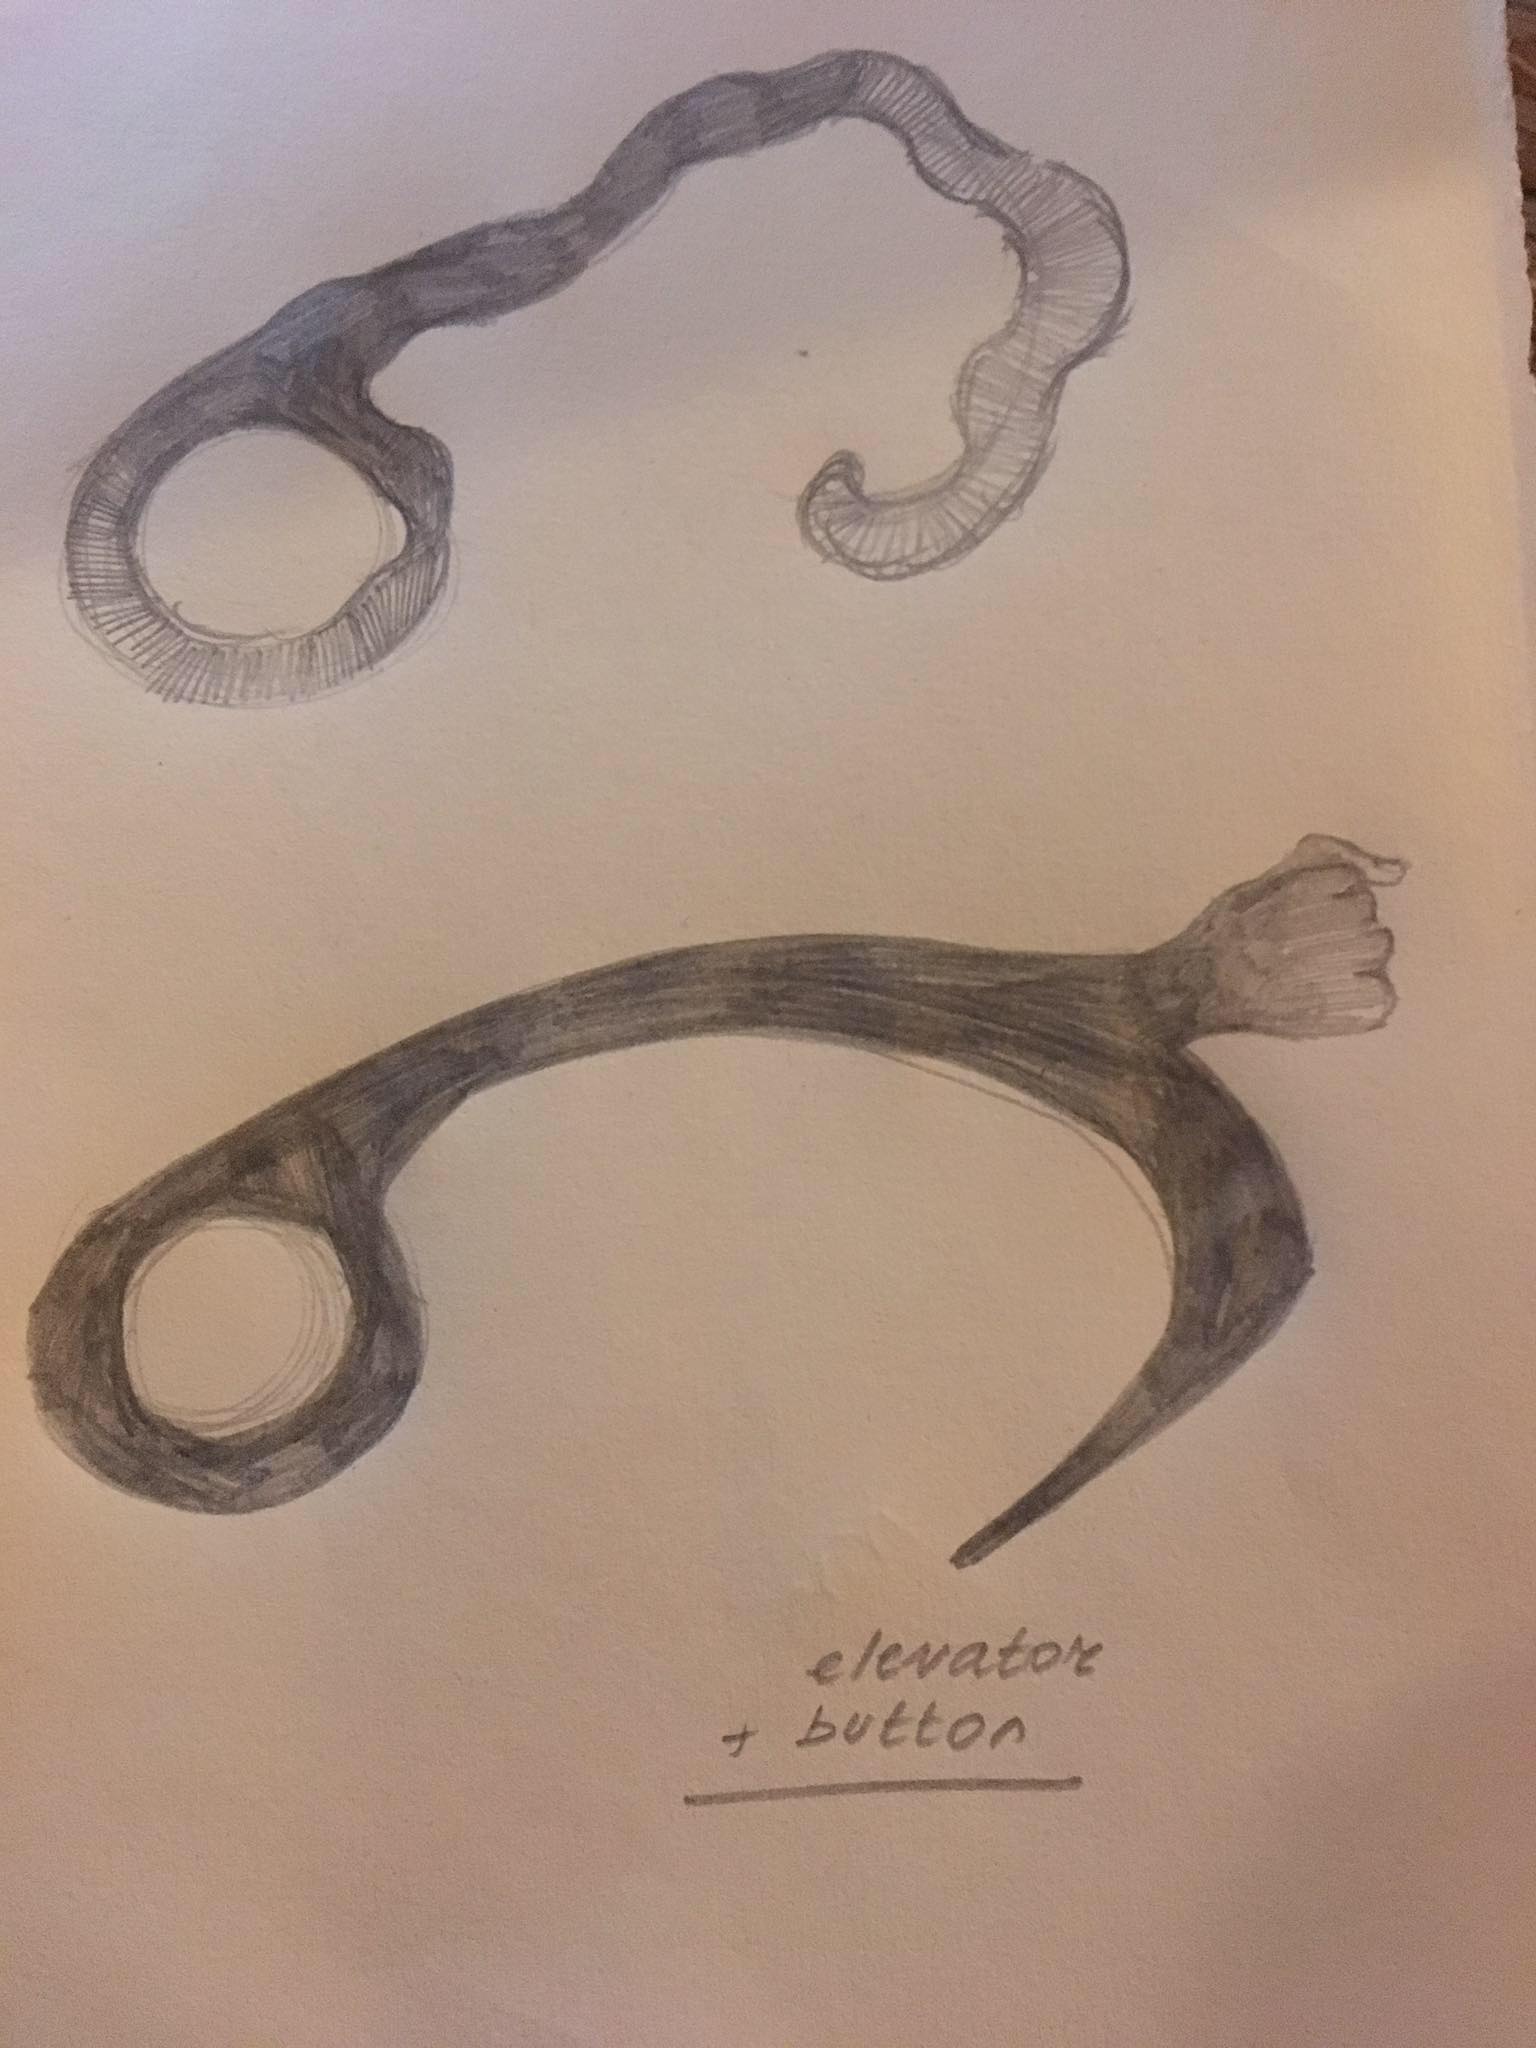 elevator
+ button